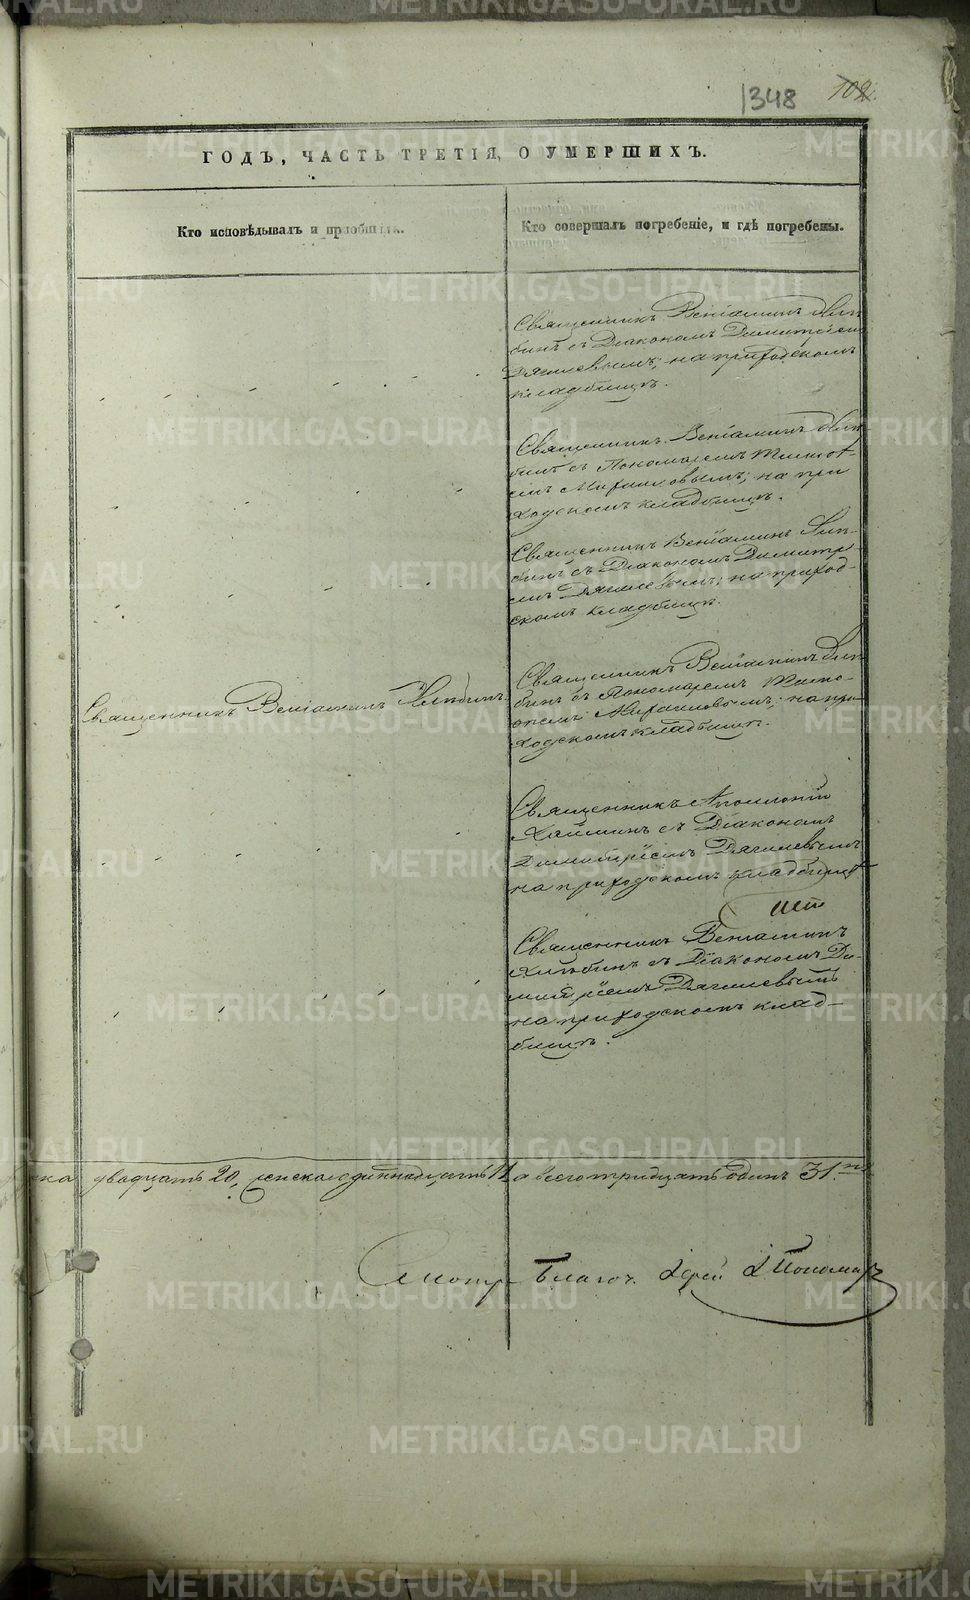 1348 102.
ГОДЪ, ЧАСТЬ ТРЕТІЯ, О УМЕРШИХЪ.
Кто исповѣдывалъ и пріобщалъ.
Кто совершалъ погребеніе, и гдѣ погребены.
Священникъ Веніаминъ
бинъ съ Діакономъ Димитріемъ
Дягилевымъ; на приходскомъ
кладбищѣ.
Священникъ Веніаминъ
бинъ съ Пономаремъ
емъ Мирашовымъ; на при
ходскомъ кладбищѣ.
Священникъ Веніаминъ
бинъ съ Діакономъ Димитрі-
емъ Дягилевымъ; на приход-
скомъ кладбищѣ.
Священникъ Веніаминъ
Священникъ Веніаминъ
бинъ съ Пономаремъ
Мирашовымъ; на при-
ходскомъ кладбищѣ.
Священникъ Аполлоній
съ Діакономъ
Димитріемъ Дягилевымъ
на приходскомъ кладбищѣ
Священникъ Веніаминъ
съ Діакономъ Ди-
митріемъ Дягилевымъ
на приходскомъ клад-
бищѣ.
ка двадцать 20, женска одиннадцать 11 а всего тридцать одинъ 31.
Благоч. Іерей Пономар
METRIKI.GASO-URAL.RU